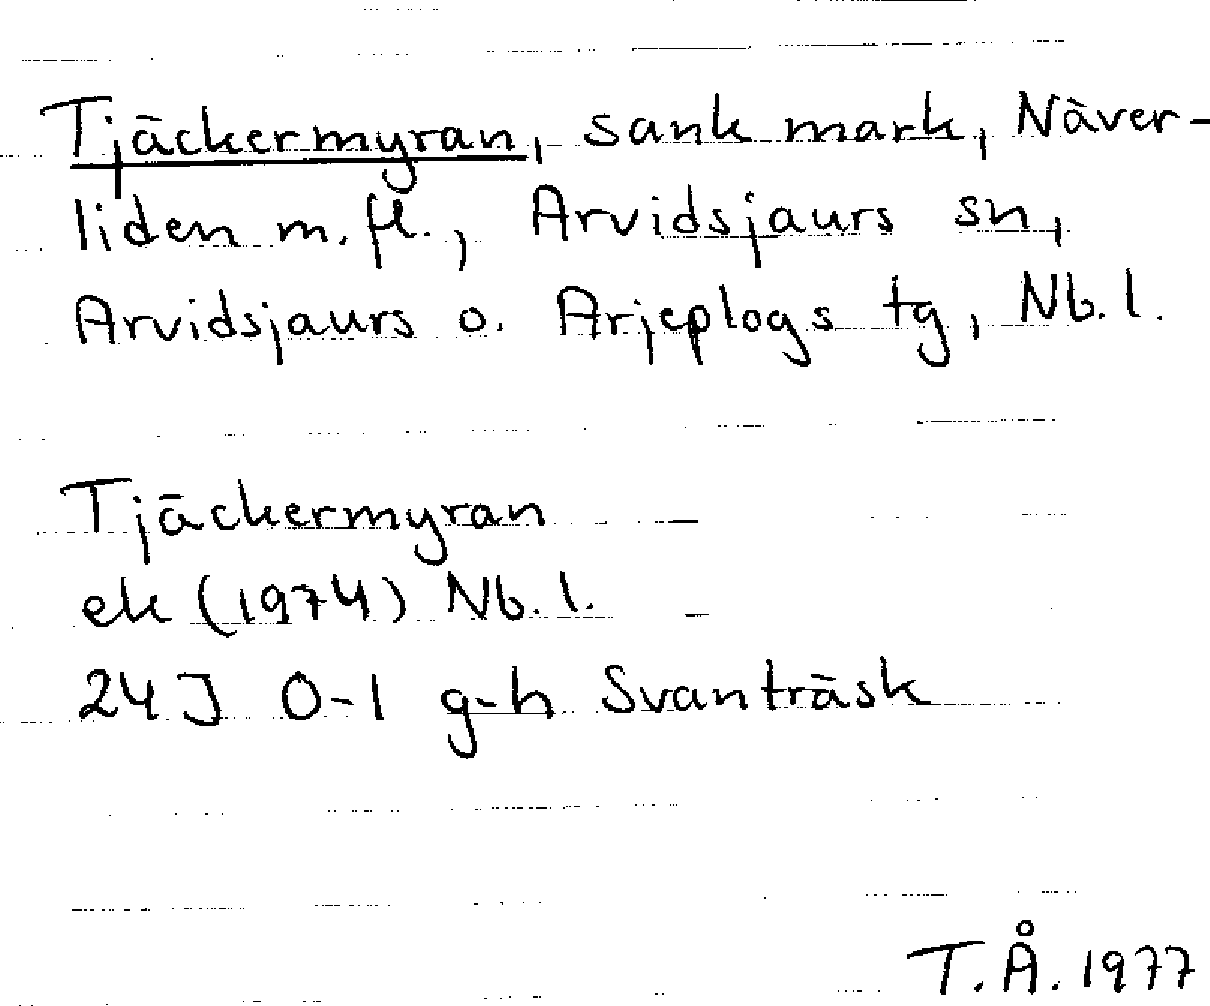 Tjäckermyran, sank mark, Näver-
liden m.fl., Arvidsjaurs sn,
Arvidsjaurs o. Arjeplogs tg, Nb.l.
Tjäckermyran
ek (1974) Nb.l.
24J 0-1 g-h Svanträsk
T.Å. 1977